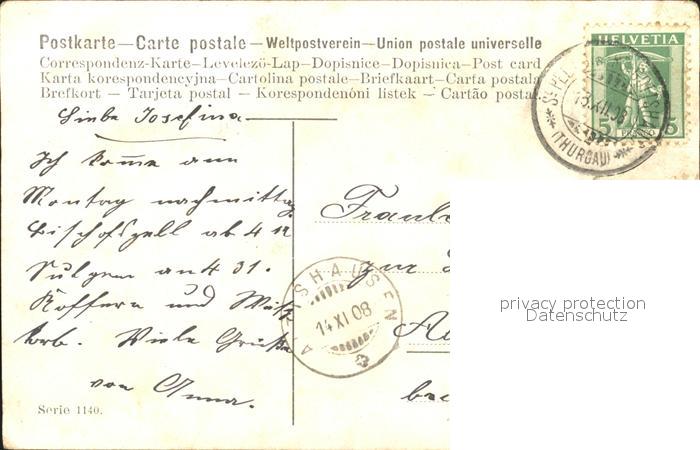 Postkarte—Carte postale—Weltpostverein—Union postale universelle
Correspondenz-Karte—Levelezö-Lap—Dopisnice—Dopisnica—Post card
Karta korespondencyjna—Cartolina postale—Briefkaart—Carta postala
Brefkort — Tarjeta postal — Korespondenóni listek — Cartão postal
HELVETIA
5 5
(THURGAU)
Liebe Josefina
Ich komme am
Montag nachmittag
Bischofszell ab 4
Sulgen an 4 31.
Koffern und
korb. Viele Grüße
von Anna.
SHAUSEN
14 XI 08
zur
privacy protection
Datenschutz
Serie 1140.